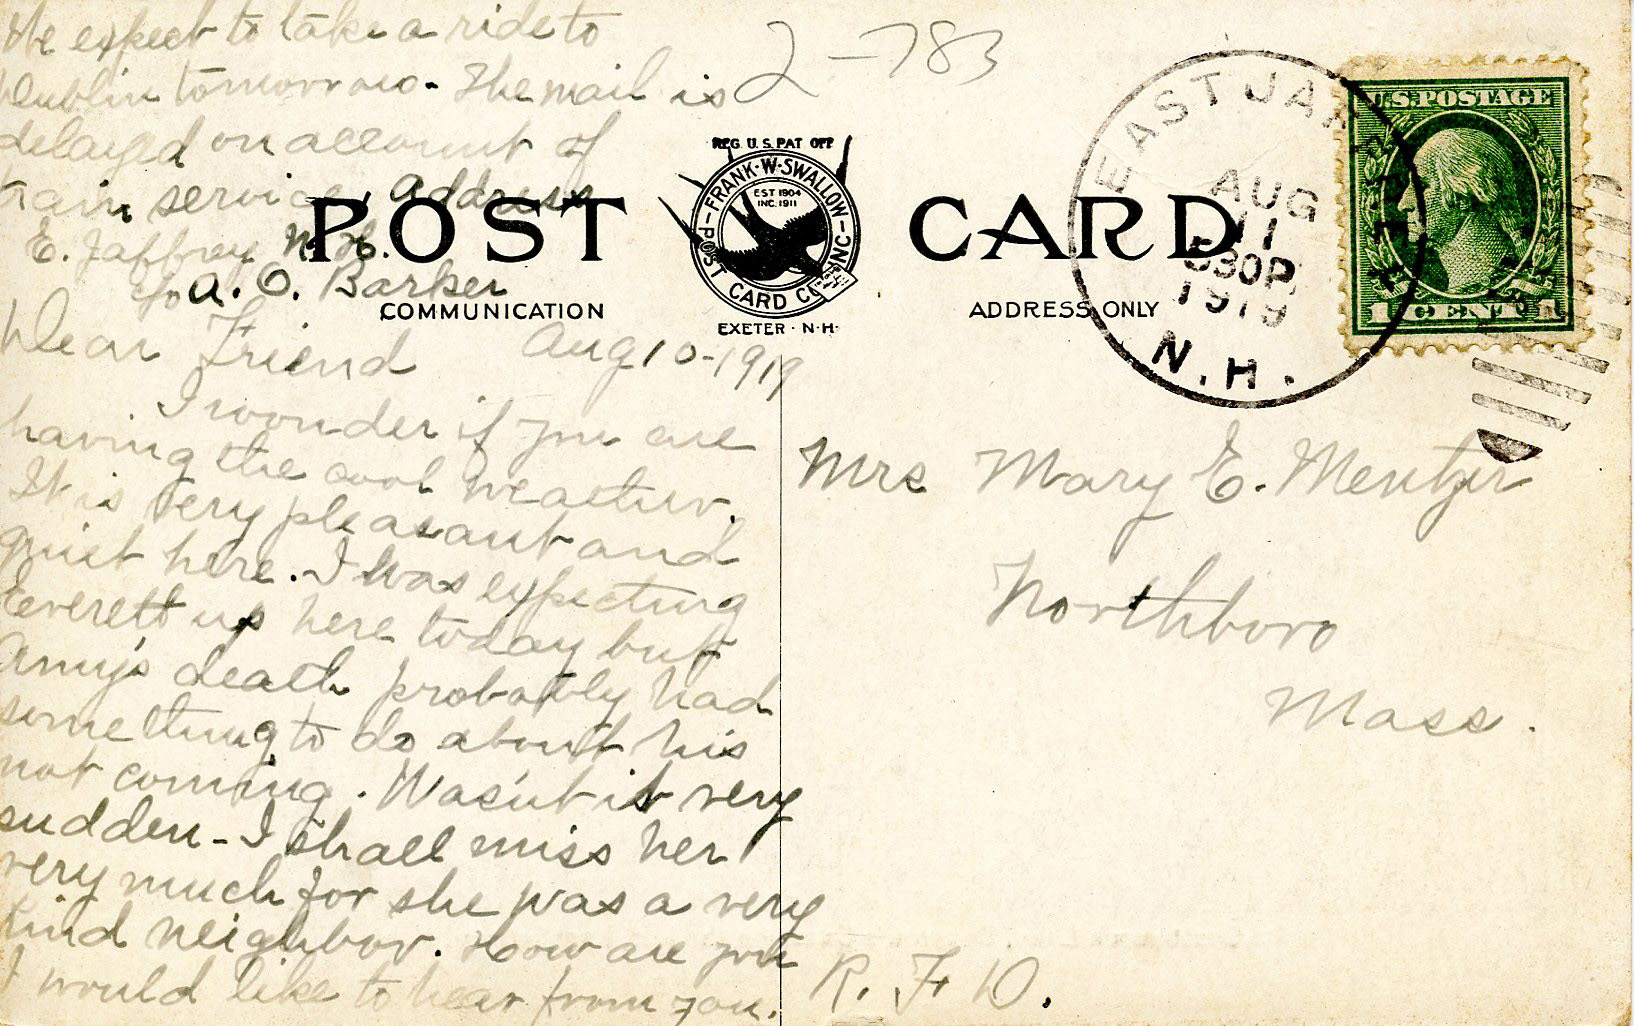 We expect to take a ride to
Dublin tomorrow. The mail is
delayed on account of
train service. Address
E. Jaffrey N. H.
c/o A. O. Barker
2-783
REG. U.S. PAT. OFF.
FRANK·W·SWALLOW
POST CARD CO. INC.
EST 1904
INC. 1911
EXETER · N·H·
POST CARD
COMMUNICATION
ADDRESS ONLY
EAST JAFFREY
AUG
11
530P
1919
N.H.
U.S. POSTAGE
1 CENT 1
Dear Friend Aug 10-1919
I wonder if you are
having the cool weather.
It is very pleasant and
quiet here. I was expecting
Everett up here today but
Amy's death probably had
something to do about his
not coming. Wasn't it very
sudden - I shall miss her
very much for she was a very
kind neighbor. How are you
I would like to hear from you.
Mrs Mary E. Mentzer
Northboro
Mass.
R. F. D.